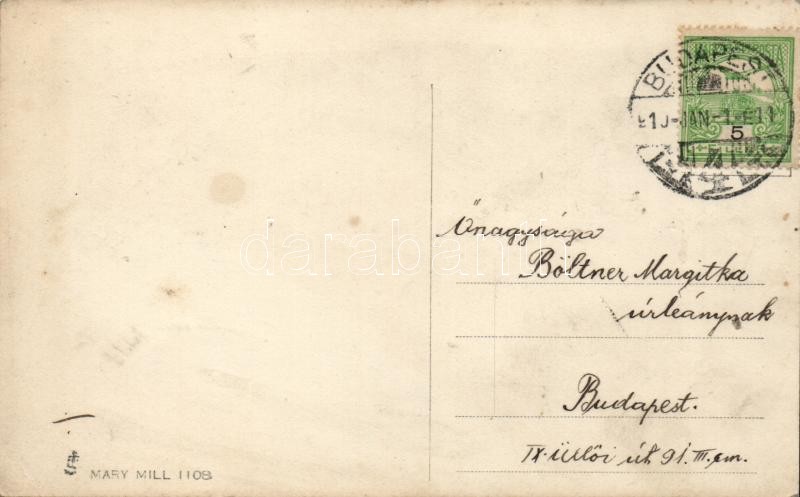 BUDAPEST
910-JAN-1-E11
5
Őnagysága
Böltner Margitka
úrleánynak
Budapest.
IX. Üllői út 91. III. em.
MARY MILL 1108
darabanth